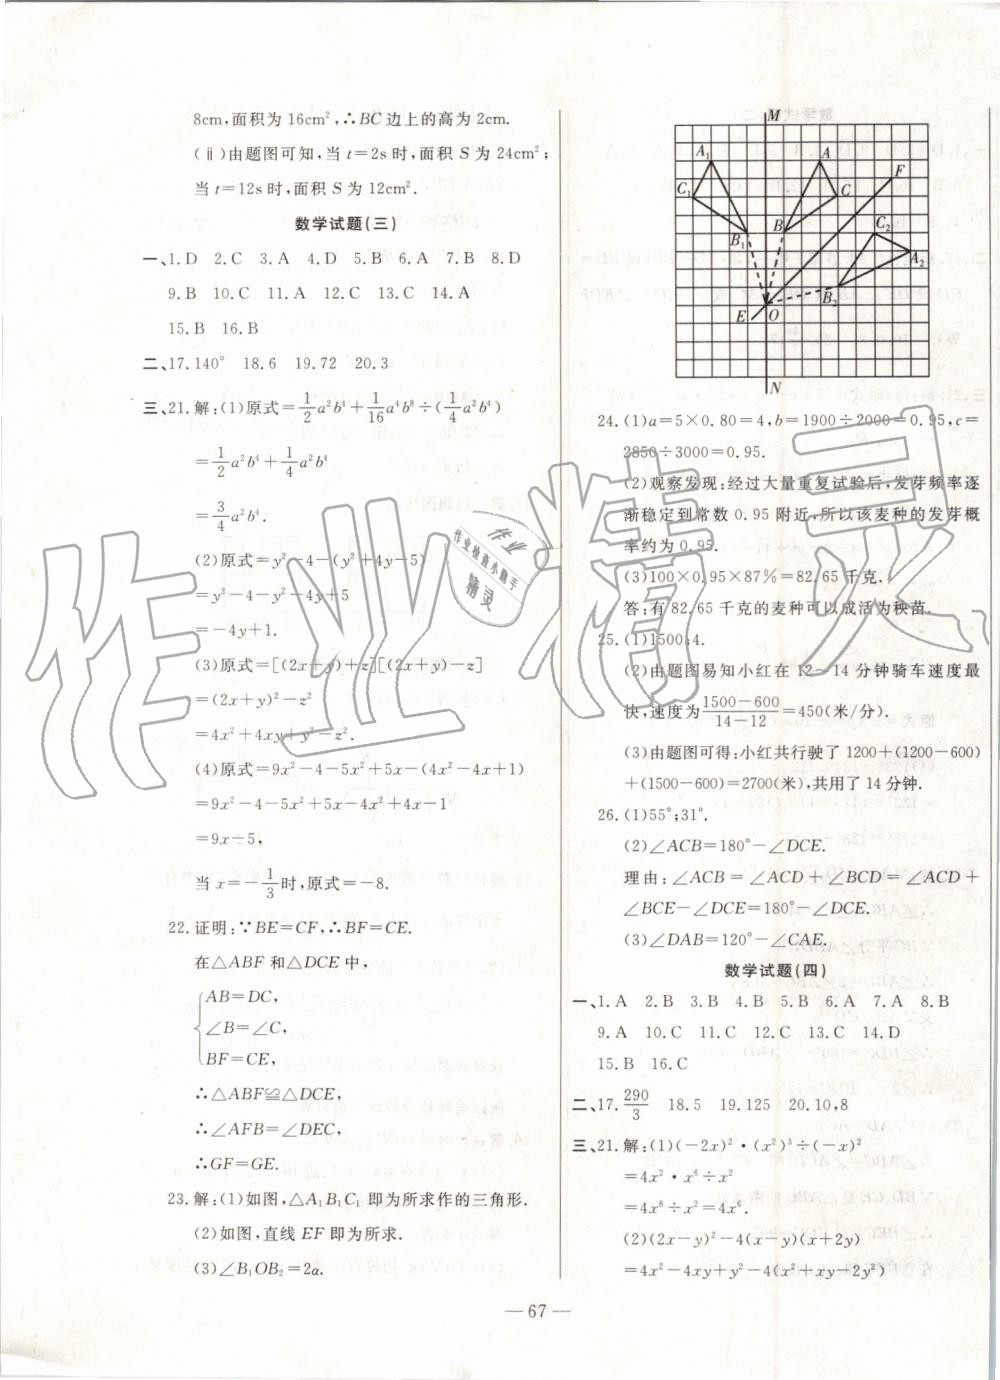 8cm,面积为16cm²,∴BC边上的高为2cm.
(ⅱ)由题图可知,当t=2s时,面积S为24cm²;
当t=12s时,面积S为12cm².
数学试题(三)
一、1.D 2.C 3.A 4.D 5.B 6.A 7.B 8.D
9.B 10.C 11.A 12.C 13.C 14.A
15.B 16.B
二、17.140° 18.6 19.72 20.3
三、21.解:(1)原式=1/2a²b⁴+1/16a⁴b⁸÷(1/4a²b⁴)
=1/2a²b⁴+1/4a²b⁴
=3/4a²b⁴.
(2)原式=y²-4-(y²+4y-5)
=y²-4-y²-4y+5
=-4y+1.
(3)原式=[(2x+y)+z][(2x+y)-z]
=(2x+y)²-z²
=4x²+4xy+y²-z².
(4)原式=9x²-4-5x²+5x-(4x²-4x+1)
=9x²-4-5x²+5x-4x²+4x-1
=9x-5,
当x=-1/3时,原式=-8.
22.证明:∵BE=CF,∴BF=CE.
在△ABF和△DCE中,
AB=DC,
∠B=∠C,
BF=CE,
∴△ABF≌△DCE,
∴∠AFB=∠DEC,
∴GF=GE.
23.解:(1)如图,△A₁B₁C₁即为所求作的三角形.
(2)如图,直线EF即为所求.
(3)∠B₁OB₂=2α.
M
A₁ A F
C₁ C
B₁ B C₂
A₂
B₂
E O
N
24.(1)a=5×0.80=4,b=1900÷2000=0.95,c=
2850÷3000=0.95.
(2)观察发现:经过大量重复试验后,发芽频率逐
渐稳定到常数0.95附近,所以该麦种的发芽概
率约为0.95.
(3)100×0.95×87%=82.65千克.
答:有82.65千克的麦种可以成活为秧苗.
25.(1)1500;4.
(2)由题图易知小红在12~14分钟骑车速度最
快,速度为(1500-600)/(14-12)=450(米/分).
(3)由题图可得:小红共行驶了1200+(1200-600)
+(1500-600)=2700(米),共用了14分钟.
26.(1)55°;31°.
(2)∠ACB=180°-∠DCE.
理由:∠ACB=∠ACD+∠BCD=∠ACD+
∠BCE-∠DCE=180°-∠DCE.
(3)∠DAB=120°-∠CAE.
数学试题(四)
一、1.A 2.B 3.B 4.B 5.B 6.A 7.A 8.B
9.A 10.C 11.C 12.C 13.C 14.D
15.B 16.C
二、17.290/3 18.5 19.125 20.10,8
三、21.解:(1)(-2x)²·(x²)³÷(-x)²
=4x²·x⁶÷x²
=4x⁸÷x²=4x⁶.
(2)(2x-y)²-4(x-y)(x+2y)
=4x²-4xy+y²-4(x²+xy-2y²)
— 67 —
作业精灵
作业
作业检查小助手
精灵